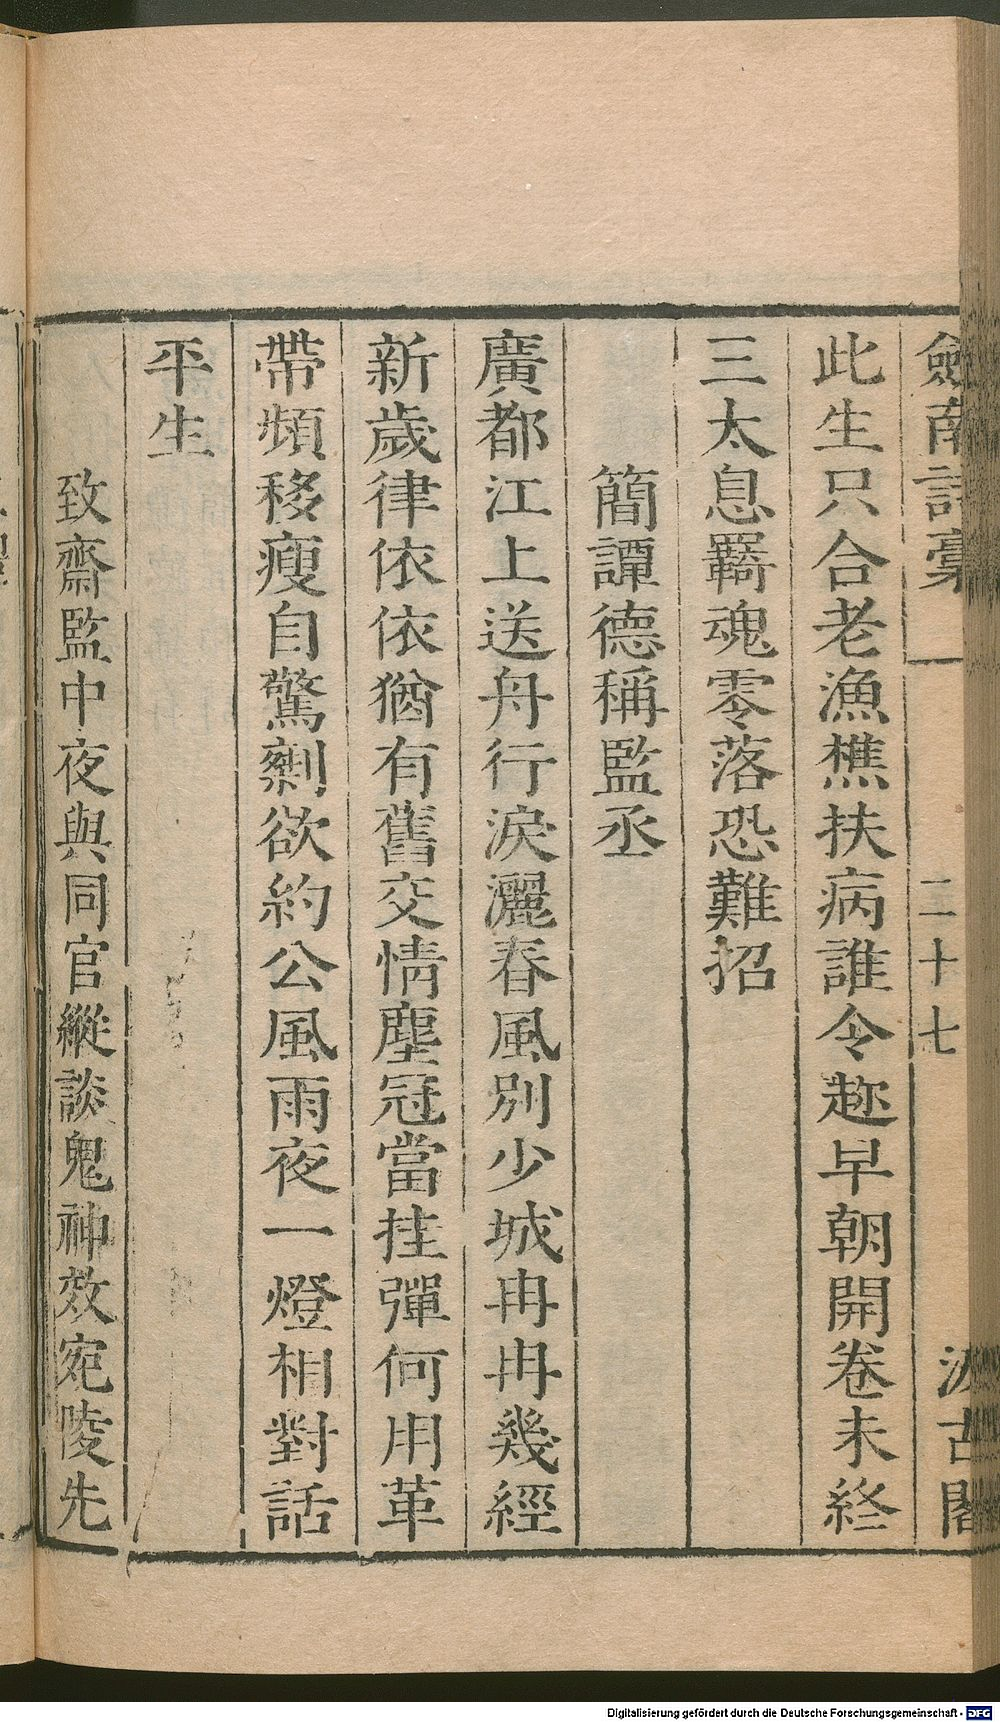 劍南詩稾 二十七 汲古閣
此生只合老漁樵扶病誰令趂早朝開卷未終
三太息羇魂零落恐難招
簡譚德稱監丞
廣都江上送舟行淚灑春風別少城冉冉幾經
新歲律依依猶有舊交情塵冠當挂彈何用革
帶頻移瘦自驚剩欲約公風雨夜一燈相對話
平生
致齋監中夜與同官縱談鬼神效宛陵先
Digitalisierung gefördert durch die Deutsche Forschungsgemeinschaft - DFG